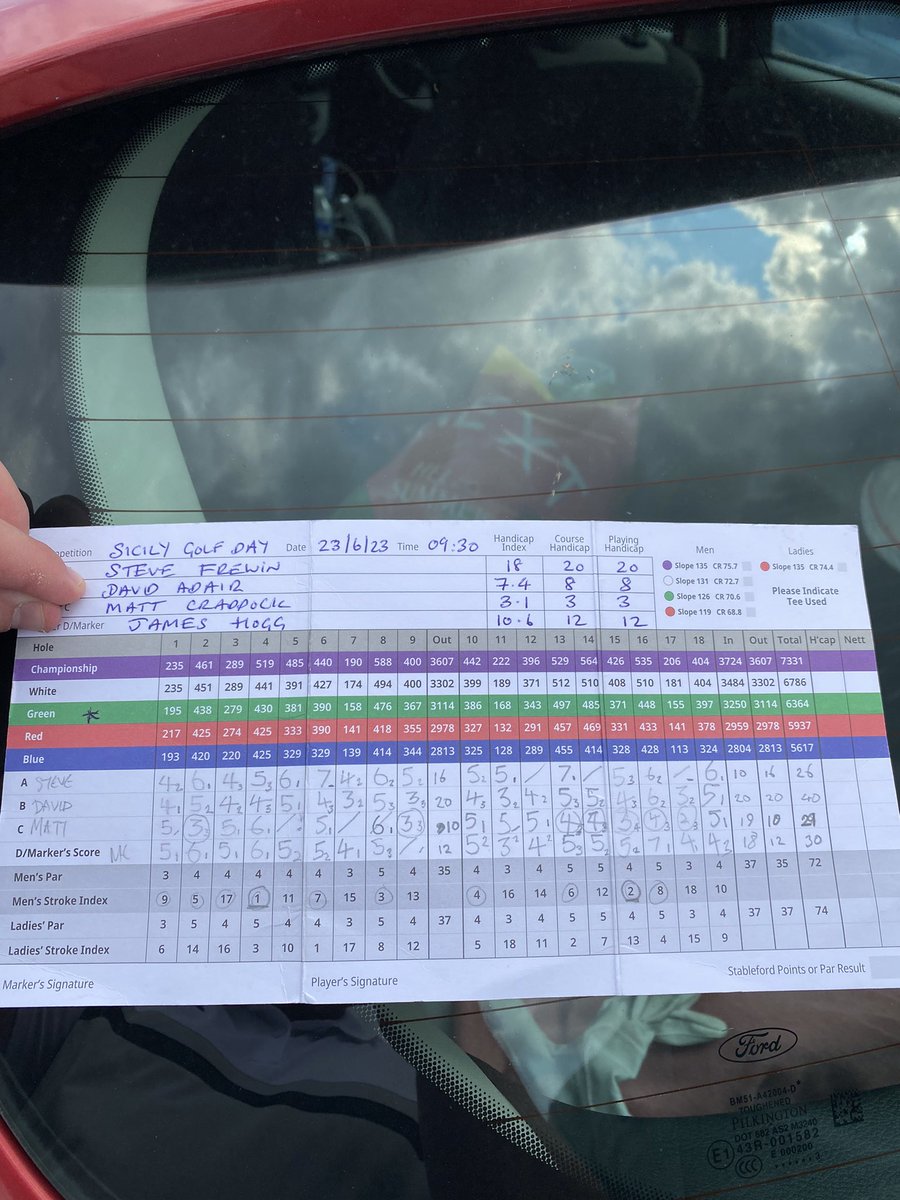 petition SICILY GOLF DAY Date 23/6/23 Time 09:30 Handicap Index Course Handicap Playing Handicap Men Ladies
STEVE FREWIN 18 20 20
DAVID ADAIR 7.4 8 8
MATT CRADDOCK 3.1 3 3
D/Marker JAMES HOGG 10.6 12 12
Slope 135 CR 75.7 Slope 135 CR 74.4
Slope 131 CR 72.7
Slope 126 CR 70.6
Slope 119 CR 68.8
Please Indicate
Tee Used
Hole 1 2 3 4 5 6 7 8 9 Out 10 11 12 13 14 15 16 17 18 In Out Total H'cap Nett
Championship 235 461 289 519 485 440 190 588 400 3607 442 222 396 529 564 426 535 206 404 3724 3607 7331
White 235 451 289 441 391 427 174 494 400 3302 399 189 371 512 510 408 510 181 404 3484 3302 6786
Green 195 438 279 430 381 390 158 476 367 3114 386 168 343 497 485 371 448 155 397 3250 3114 6364
Red 217 425 274 425 333 390 141 418 355 2978 327 132 291 457 469 331 433 141 378 2959 2978 5937
Blue 193 420 220 425 329 329 139 414 344 2813 325 128 289 455 414 328 428 113 324 2804 2813 5617
A STEVE 4 2 6 1 4 3 5 3 6 1 7 - 4 2 6 2 5 2 16 5 2 5 1 / 7 1 / 5 3 6 2 - 6 1 10 16 26
B DAVID 4 1 5 2 4 2 4 3 5 1 4 3 3 2 5 3 3 3 20 4 3 3 2 4 2 5 3 5 2 4 3 6 2 3 2 5 1 20 20 40
C MATT 5 3 3 5 1 6 1 / 5 1 / 6 1 3 3 10 5 1 5 5 1 4 3 4 3 4 3 5 1 19 10 29
D/Marker's Score 5 1 6 1 5 1 6 1 5 2 5 2 4 1 5 3 / 12 5 2 3 2 4 2 5 3 5 2 5 2 7 1 4 1 4 3 18 12 30
Men's Par 3 4 4 4 4 4 3 5 4 35 4 3 4 5 5 4 5 3 4 37 35 72
Men's Stroke Index 9 5 17 1 11 7 15 3 13 4 16 14 6 12 2 8 18 10
Ladies' Par 3 5 4 5 4 4 3 5 4 37 4 3 4 5 5 4 5 3 4 37 37 74
Ladies' Stroke Index 6 14 16 3 10 1 17 8 12 5 18 11 2 7 13 4 15 9
Marker's Signature Player's Signature Stableford Points or Par Result
Ford
BM51-A42004-D*
TOUGHENED
PILKINGTON
DOT 582 AS2 M3240
E1 43R-001582
CCC E 000200